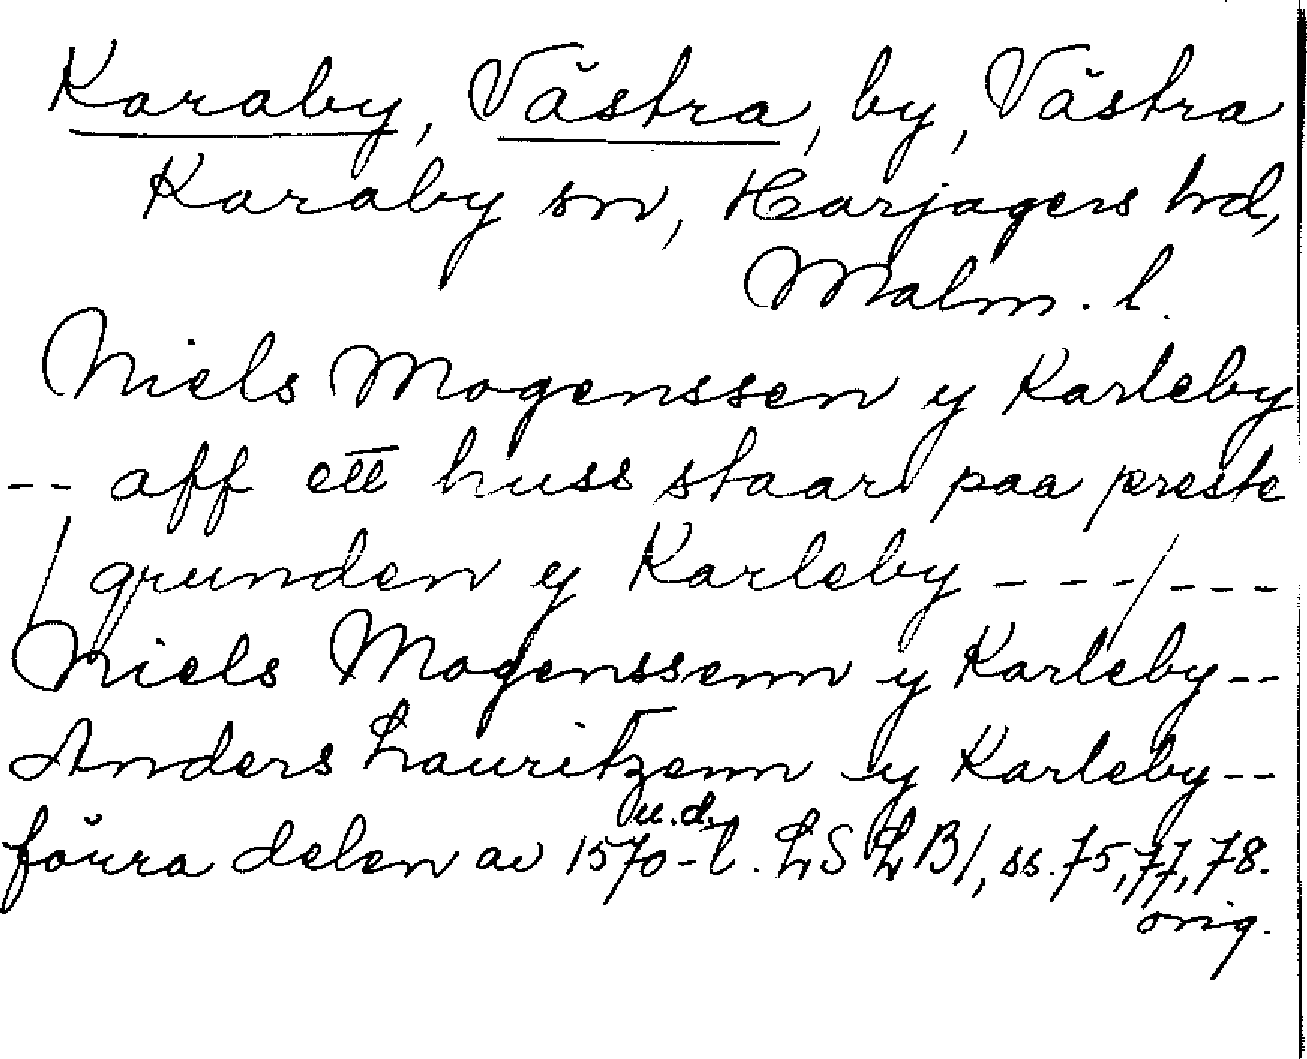 Karaby, Västra, by, Västra
Karaby sn, Harjagers hd,
Malm. l.
Niels Mogenssen y Karleby
-- aff ett huss staar paa preste
/ grunden y Karleby ---/---
Niels Mogenssenn y Karleby--
Anders Lauritzenn y Karleby--
u.d.
förra delen av 1570-t. LSLB1, ss. 75, 77, 78.
orig.